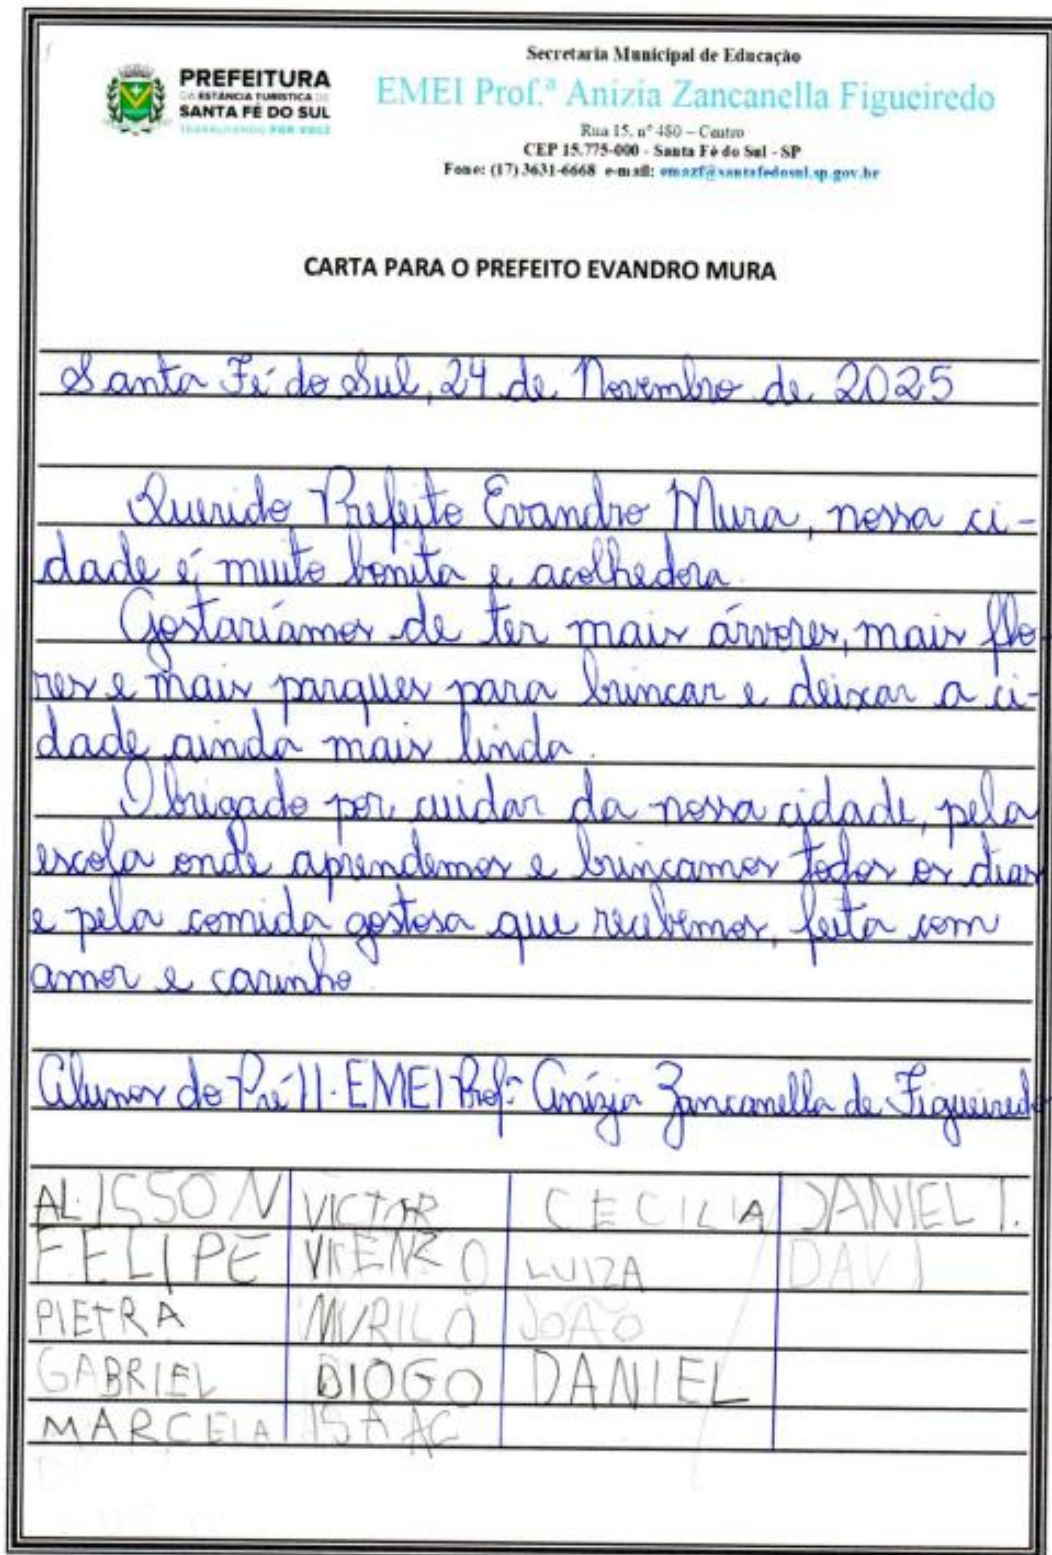 Secretaria Municipal de Educação
PREFEITURA
DA ESTÂNCIA TURÍSTICA DE
SANTA FÉ DO SUL
TRABALHANDO POR VOCÊ
EMEI Prof.ª Anizia Zancanella Figueiredo
Rua 15, nº 480 – Centro
CEP 15.775-000 - Santa Fé do Sul - SP
Fone: (17) 3631-6668 e-mail: emazf@santafedosul.sp.gov.br
CARTA PARA O PREFEITO EVANDRO MURA
Santa Fé do Sul, 24 de Novembro de 2025
Querido Prefeito Evandro Mura, nossa ci-
dade é muito bonita e acolhedora.
Gostaríamos de ter mais árvores, mais flo-
res e mais parques para brincar e deixar a ci-
dade ainda mais linda.
Obrigado por cuidar da nossa cidade, pela
escola onde aprendemos e brincamos todos os dias
e pela comida gostosa que recebemos, feita com
amor e carinho.
Alunos do Pré II - EMEI Profª Anízia Zancanella de Figueiredo
ALISSON VICTOR CECILIA DANIEL T.
FELIPE VICENZO LUIZA DAVI
PIETRA MURILO JOÃO
GABRIEL DIOGO DANIEL
MARCELA ISAAC